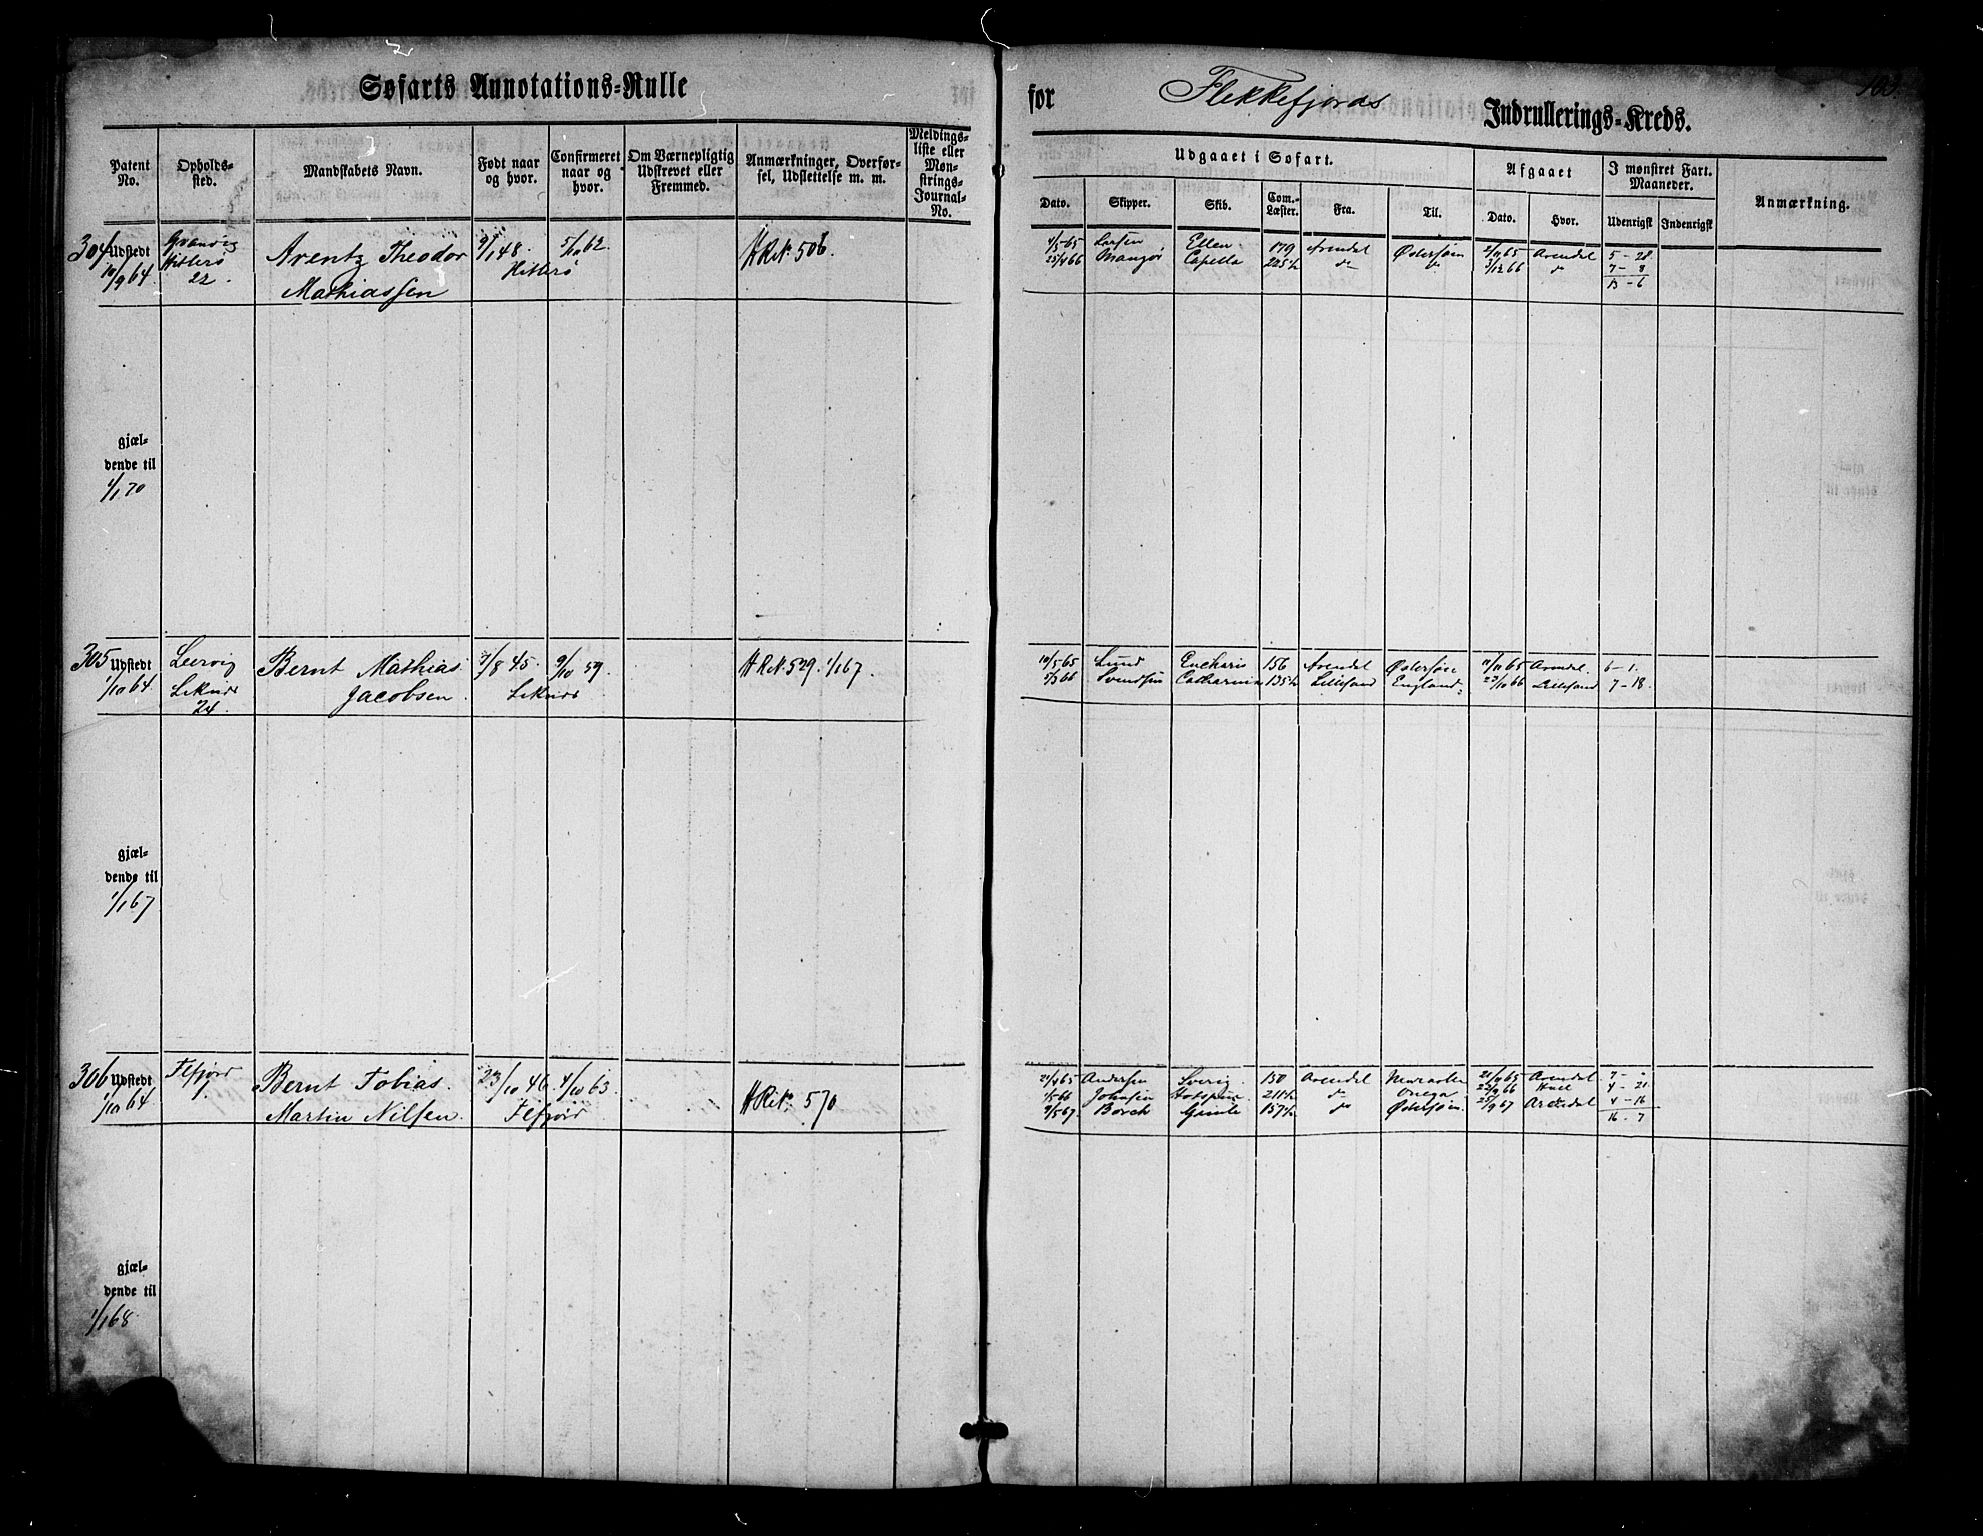 103.
Søfarts Annotations-Rulle
for Flekkefjords Indrullerings-Kreds.
Patent No.
Opholds-sted.
Mandskabets Navn.
Født naar og hvor.
Confirmeret naar og hvor.
Om Værnepligtig Udskrevet eller Fremmed.
Anmærkninger, Overførsel, Udslettelse m. m.
Meldings-liste eller Mønstrings-Journal-No.
Udgaaet i Søfart.
Afgaaet
I mønstret Fart. Maaneder.
Anmærkning.
Dato.
Skipper.
Skib.
Com.-Læster.
Fra.
Til.
Dato.
Hvor.
Udenrigsk
Indenrigsk
304 Udstedt
10/9 64
Hitterø
22.
Arentz Theodor
Mathiassen
9/1 48.
5/10 62.
Hitterø
H Rt. 506.
1/5 65 Larsen Ellen 179 Arendal Østersøen 2/11 65 Arendal 5 - 28
25/4 66 Capella do 3/12 66 do 7 - 8
13 - 6
gjæl-
dende til
1/1 70
305 Udstedt
1/10 64.
Leervig
24.
Bernt Mathias
Jacobsen.
7/8 45.
9/10 59.
H Rt. 529. 1/1 67.
10/5 65 Lund Eucharis 156 Arendal Østersøen 11/11 65 Arendal 6 - 1.
5/3 66 Svendsen Catharina Lillesand England 23/10 66 Lillesand 7 - 18.
gjæl-
dende til
1/1 67
306 Udstedt
1/10 64.
Fefjord
1.
Bernt Tobias
Martin Nilsen.
23/10 46.
4/10 63.
Fefjord
H Rt. 570
21/4 65 Andersen Sverig 150 Arendal 21/11 65 Arendal 7 -
1/5 66 Johnsen do Onega 22/9 66 Hull 4 - 21
9/5 67. Borch Gimle do Østersøen. 25/9 67 Arendal 4 - 16
16 - 7
gjæl-
dende til
1/1 68.